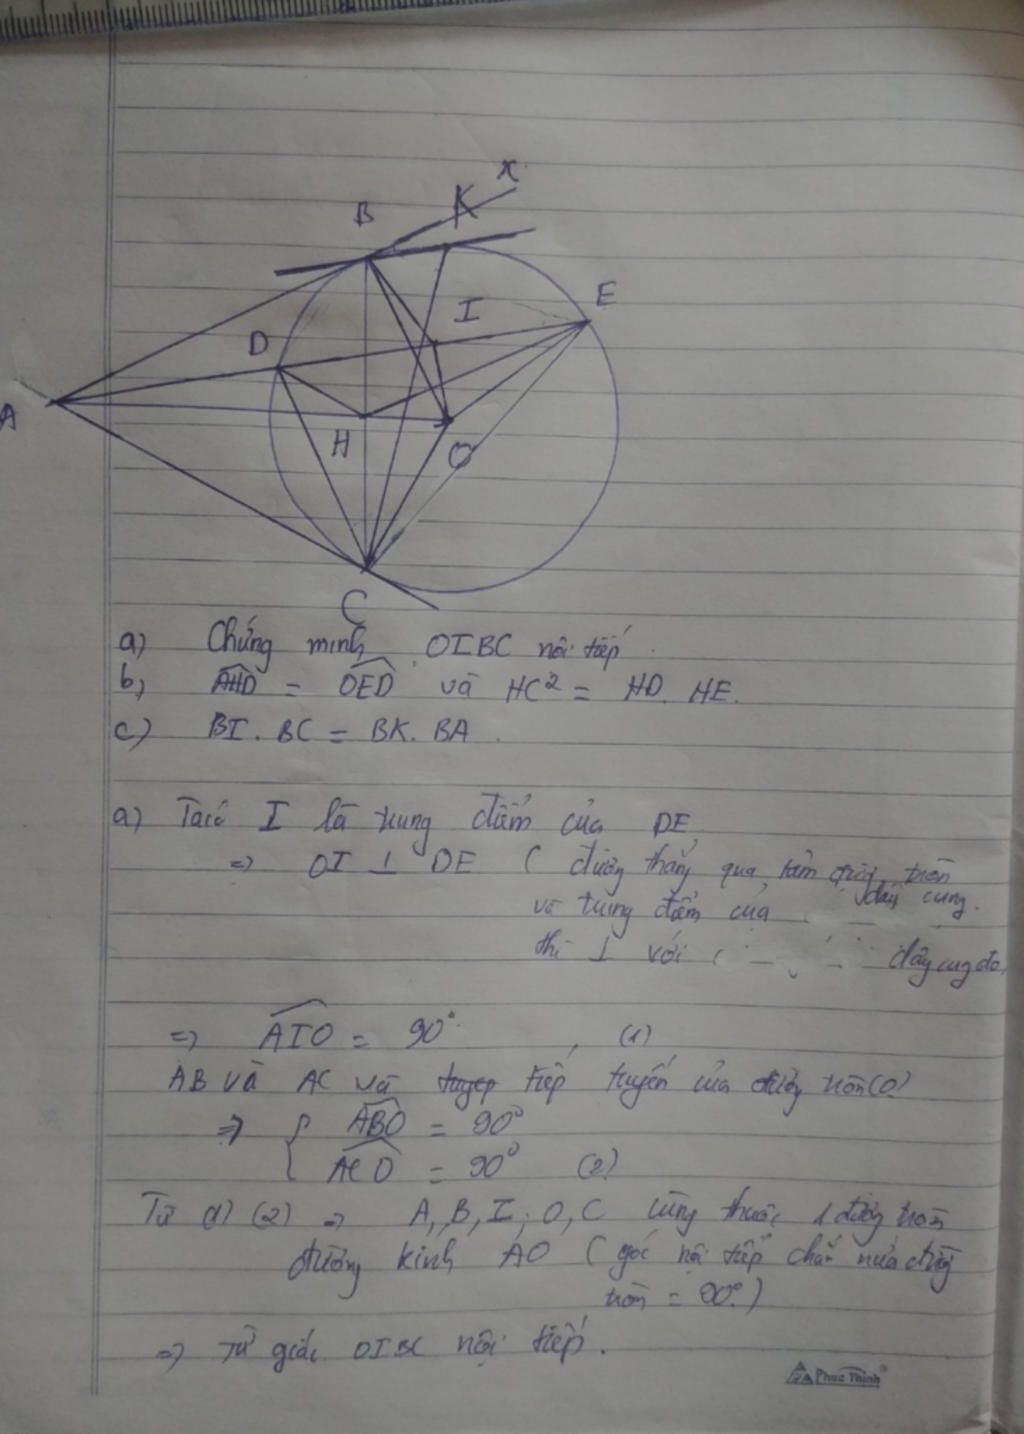 x
B
K
I
E
D
A
H
O
C
a) Chứng minh OIBC nội tiếp.
b) AHD = OED và HC² = HD. HE.
c) BI. BC = BK. BA.
a) Ta có I là trung điểm của DE
=> OI ⊥ DE ( đường thẳng qua tâm đường tròn
và trung điểm của dây cung.
thì ⊥ với dây cung đó
=> AIO = 90° (1)
AB và AC và tiếp tuyến của đường tròn (O)
=> { ABO = 90°
ACO = 90° (2)
Từ (1) (2) => A, B, I, O, C cùng thuộc 1 đường tròn
đường kính AO ( góc nội tiếp chắn nửa đường
tròn = 90°)
=> Tứ giác OIBC nội tiếp.
Phuc Thinh